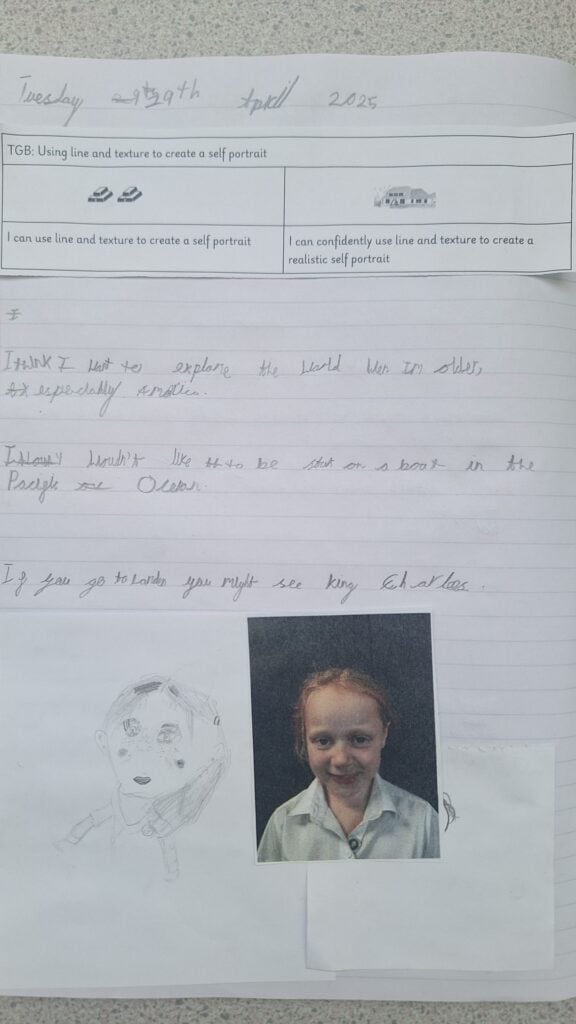 Tuesday 29th April 2025
TGB: Using line and texture to create a self portrait
I can use line and texture to create a self portrait
I can confidently use line and texture to create a
realistic self portrait
I think I want to explore the world wen Im older,
especially
I wouldn't like to be on a boat in the
Ocean.
If you go to London you might see king Charles.